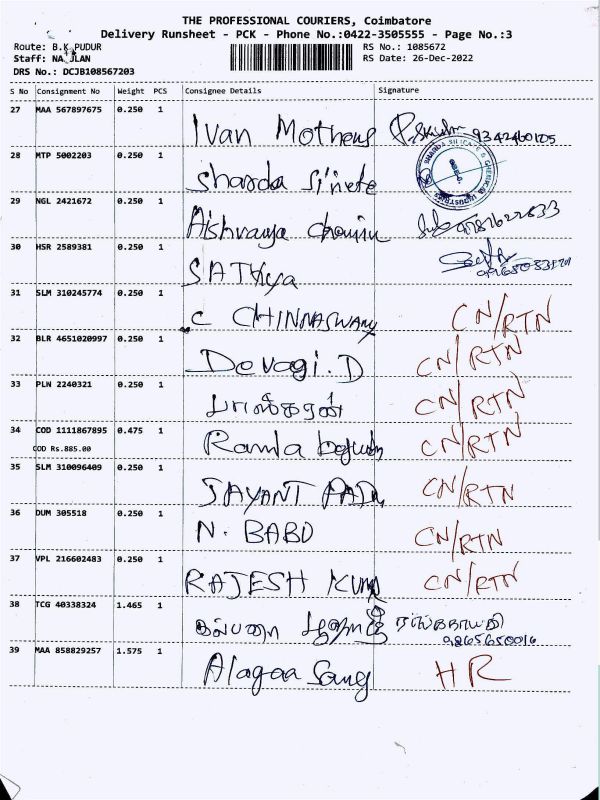 THE PROFESSIONAL COURIERS, Coimbatore
Delivery Runsheet - PCK - Phone No.:0422-3505555 - Page No.:3
Route: B.K PUDUR
RS No.: 1085672
Staff:
RS Date: 26-Dec-2022
DRS No.: DCJB108567203
S No Consignment No Weight PCS Consignee Details Signature
27 MAA 567897675 0.250 1 Ivan 9342460105
28 MTP 5002203 0.250 1 Sharda
29 NGL 2421672 0.250 1 Aishvarya
30 HSR 2589381 0.250 1 SAThya
31 SLM 310245774 0.250 1 C CHINNASWAMY CN/RTN
32 BLR 4651020997 0.250 1 Devagi.D CN/RTN
33 PLN 2240321 0.250 1 CN/RTN
34 COD 1111867895 0.475 1 Ramla CN/RTN
COD Rs.885.00
35 SLM 310096409 0.250 1 JAYANT CN/RTN
36 DUM 305518 0.250 1 N. BABU CN/RTN
37 VPL 216602483 0.250 1 RAJESH KUMAR CN/RTN
38 TCG 40338324 1.465 1 கல்பனா
9865650016
39 MAA 858829257 1.575 1 Alagaa HR